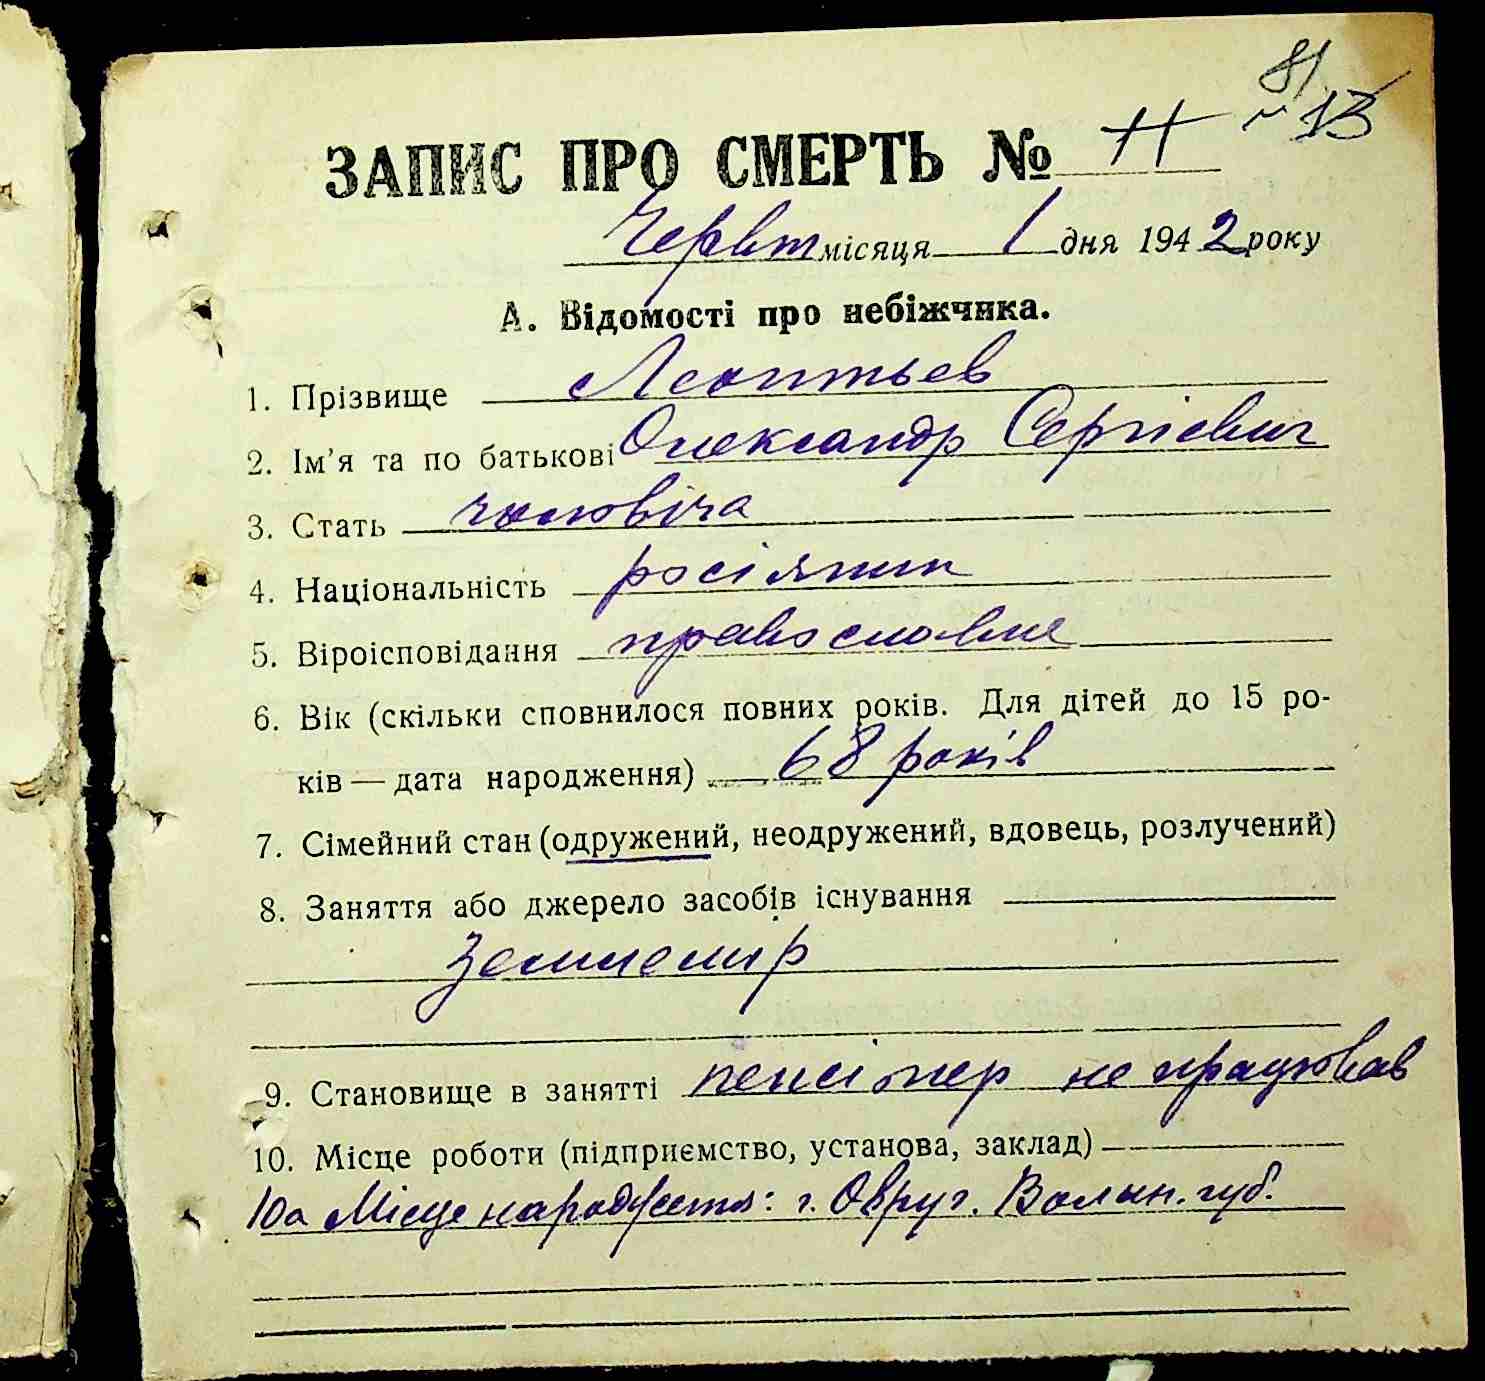 81
~ 13
ЗАПИС ПРО СМЕРТЬ № 11
Червт місяця 1 дня 1942 року
А. Відомості про небіжчика.
1. Прізвище Леонтьев
2. Ім'я та по батькові Олександр Сергієвич
3. Стать чоловіча
4. Національність росіянин
5. Віроісповідання православне
6. Вік (скільки сповнилося повних років. Для дітей до 15 ро-
ків — дата народження) 68 років
7. Сімейний стан (одружений, неодружений, вдовець, розлучений)
8. Заняття або джерело засобів існування
Землемір
9. Становище в занятті пенсіонер не працював
10. Місце роботи (підприємство, установа, заклад)
10а Місце народження: г. Овруч. Волын. губ.